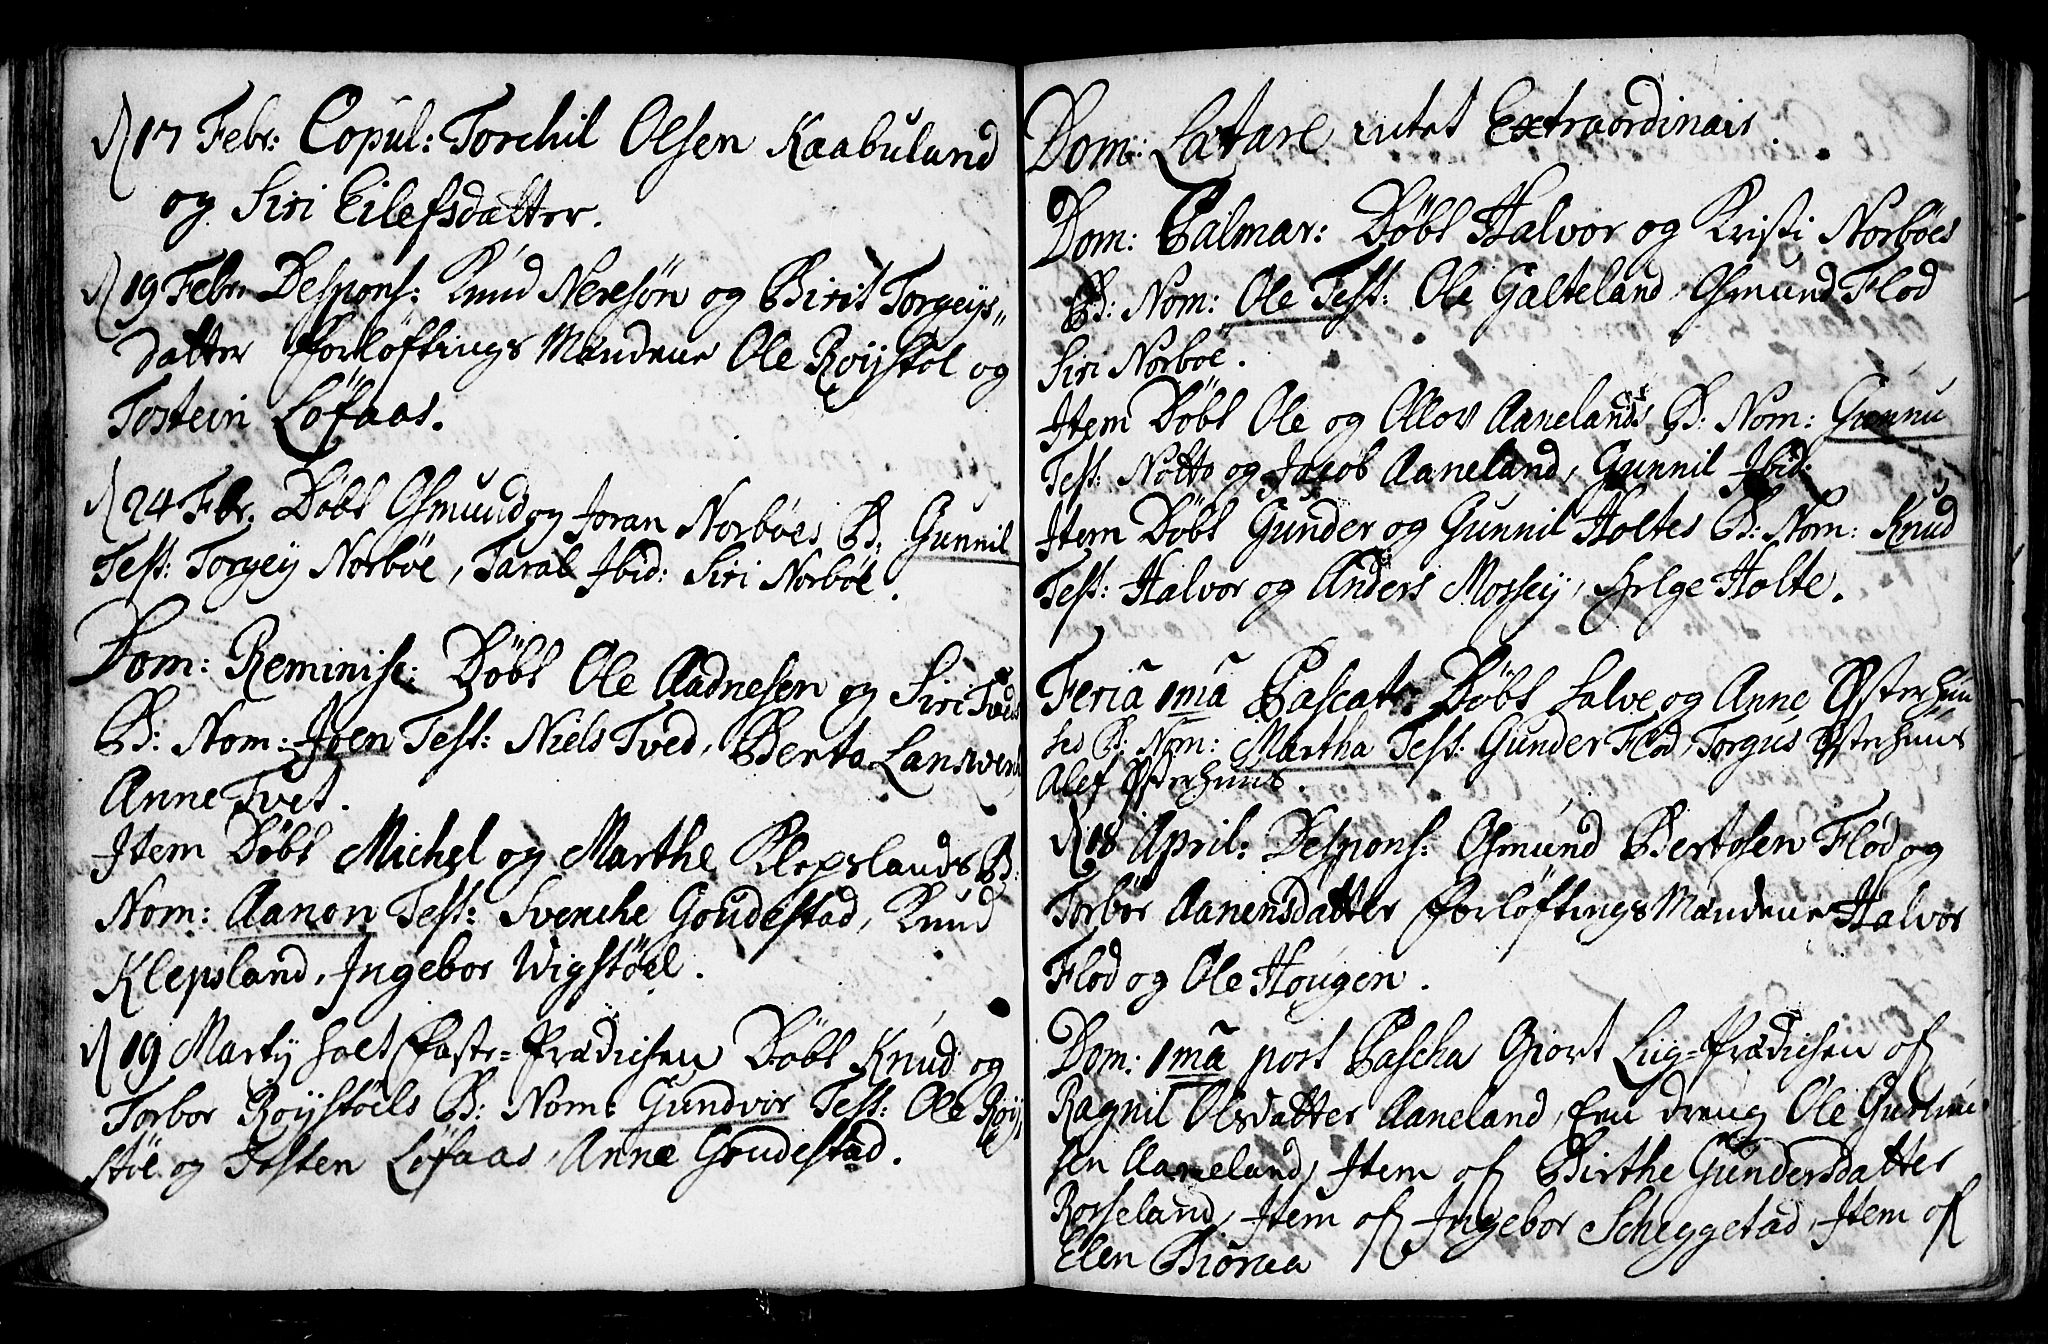 d 17 Febr: Copul: Torchil Olsen Kaabuland
og Siri Eilefsdatter.
d 19 Febr. Despons: Knud Neresøn og Birit Torgeys„
datter Forløftings Mændene Ole Röÿstøl og
Tostein Løfaas.
d 24 Febr. Døbt Osmund og Joran Norbøes B: Gunnil
Test: Torgey Norbøe, Taral Ibid: Siri Norbøe.
Dom: Reminisc: Døbt Ole Aadnesen og Siri Tveds
B: Nom: Joen Test: Niels Tved, Berto Lanwerk,
Anne Tvet.
Item Døbt Michel og Marthe Klepslands B:
Nom: Aanon Test: Svenche Goudestad, Knud
Klepsland, Ingebor Wigstøel.
d 19 Martÿ holt Faste-Prædichen Døbt Knud og
Torbor Röÿstøels B: Nom: Gundvor Test: Ole Röÿ
støl og Tosten Løfaas, Anne Goudestad.
Dom: Lætare intet Extraordinair.
Dom: Palmar: Døbt Halvor og Kristi Norbøes
B: Nom: Ole Test: Ole Galteland, Osmund Flod
Siri Norbøe.
Item Døbt Ole og Ollov Aanelands B: Nom: Gunnu
Test: Notto og Jacob Aaneland, Gunnil Ibid:
Item Døbt Gunder og Gunnil Holtes B: Nom: Knud
Test: Halvor og Anders Mossey, Helge Holte.
Feria 1ma Pascat: Døbt Salve og Anne Østerhuu
ses B: Nom: Martha Test: Gunder Flod, Torgus Østerhuus
Alef Østerhuus.
d 18 April: Despons: Osmund Bertosen Flod og
Torbør Aanensdatter Forløftings Mændene Halvor
Flod og Ole Hougen.
Dom: 1ma post Pascha Giort Liig-Prædichen of
Ragnil Olsdatter Aaneland, Een dreng Ole Gunnu
sen Aaneland, Item of Birthe Gundersdatter
Rosseland, Item of Ingebor Scheggetad, Item of
Elen Biøraa